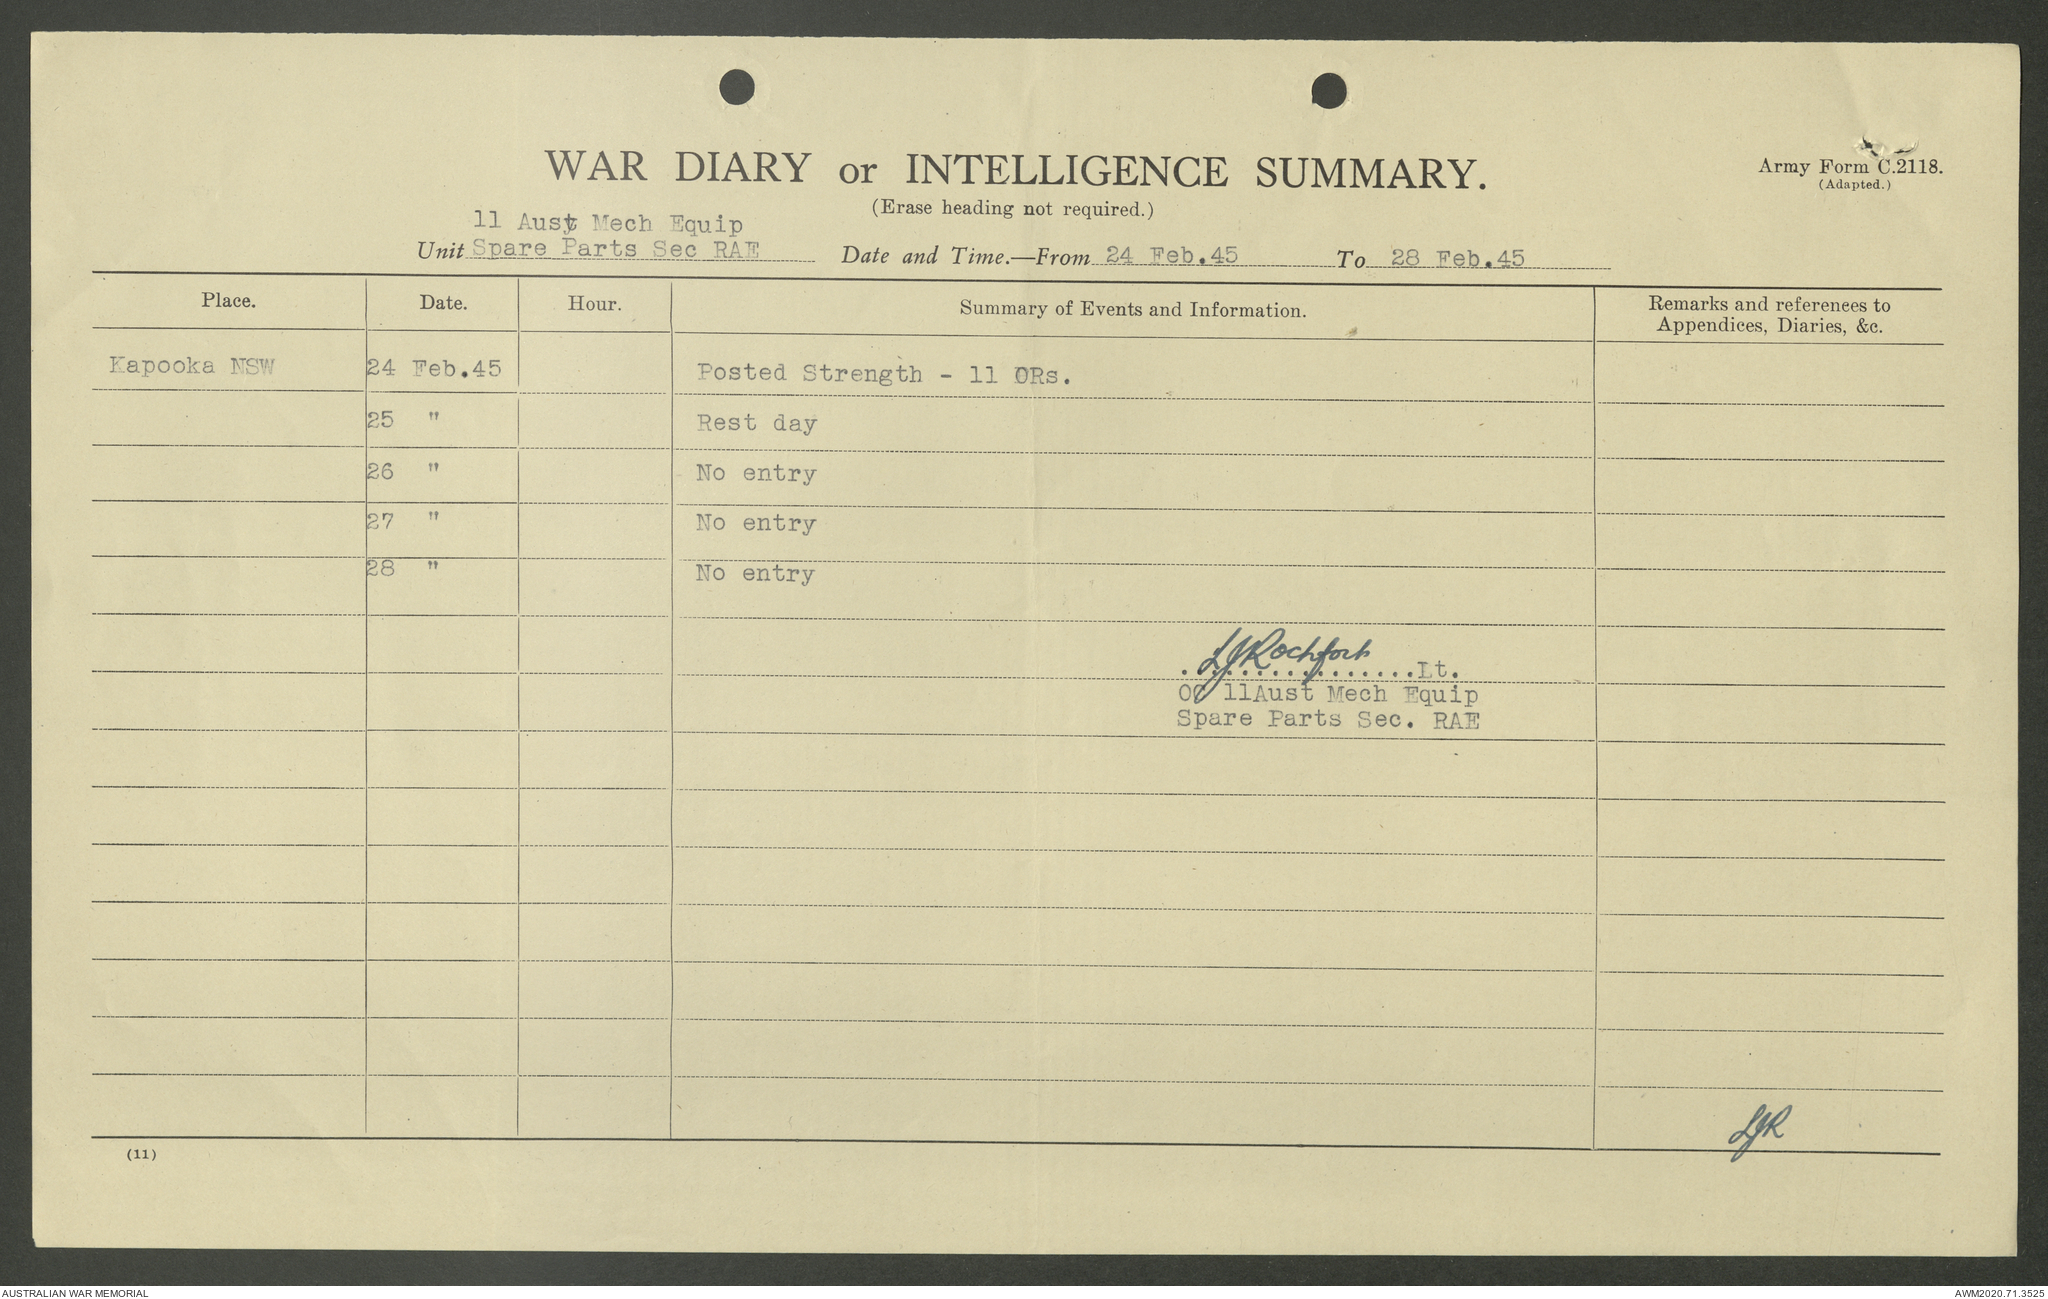 WAR DIARY or INTELLIGENCE SUMMARY.
Army Form C.2118.
(Adapted.)
(Erase heading not required.)
11 Aust Mech Equip
Unit Spare Parts Sec RAE Date and Time.—From 24 Feb.45 To 28 Feb.45
Place. Date. Hour. Summary of Events and Information. Remarks and references to
Appendices, Diaries, &c.
Kapooka NSW 24 Feb.45 Posted Strength - 11 ORs.
25 " Rest day
26 " No entry
27 " No entry
28 " No entry
LJRochfort
..................Lt.
OC 11Aust Mech Equip
Spare Parts Sec. RAE
LJR
(11)
AUSTRALIAN WAR MEMORIAL AWM2020.71.3525